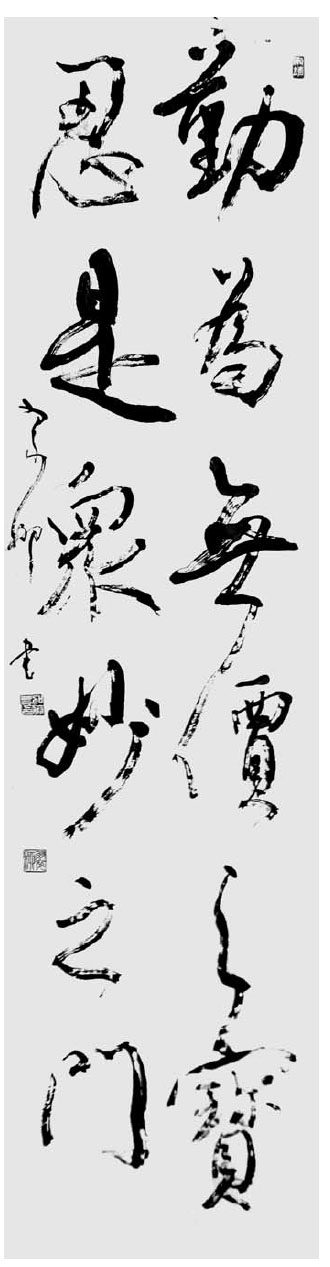 勤為無價之寶
忍是衆妙之門
書